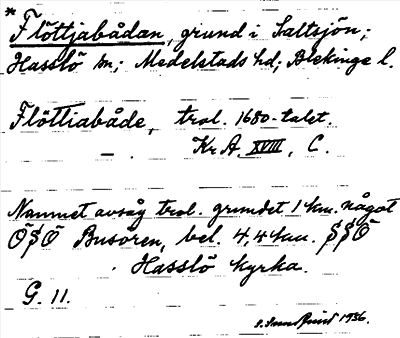 * Flöttjabådan, grund i Saltsjön;
Hasslö sn; Medelstads hd; Blekinge l.
Flöttiabåde, trol. 1680-talet
Kr.A. XVIII, C.
Namnet avsåg trol. grundet 1 km. något
ÖSÖ Busören, bel. 4,4 km. SSÖ
Hasslö kyrka.
G. 11.
1936.